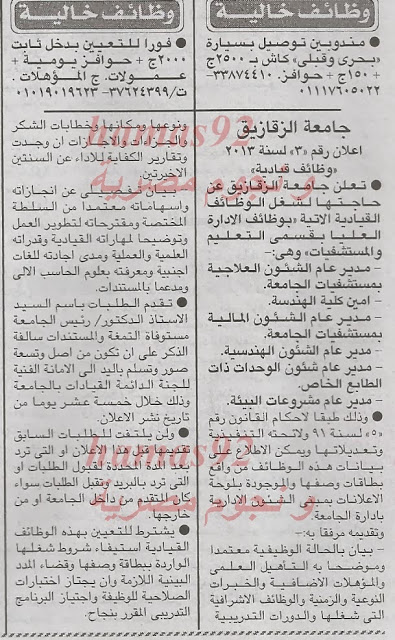 وظائف خالية
● مندوبين توصيل بسيارة
«بحرى وقبلى» كاش بـ ٢٥٠٠ج
+ ١٥٠ج + حوافز. ٣٣٨٧٤٤١٠ـ
٠١١١٧٦٠٥٠٢٢
جامعة الزقازيق
اعلان رقم «٣» لسنة ٢٠١٣
«وظائف قيادية»
● تعلن جامعة الزقازيق عن
حاجتها لشغل الوظائف
القيادية الاتية «بوظائف الادارة
العليا بقسمى التعليم
والمستشفيات» وهى:-
- مدير عام الشئون العلاجية
بمستشفيات الجامعة.
- امين كلية الهندسة.
- مدير عام الشئون المالية
بمستشفيات الجامعة.
- مدير عام الشئون الهندسية.
- مدير عام شئون الوحدات ذات
الطابع الخاص.
- مدير عام مشروعات البيئة.
● وذلك طبقا لاحكام القانون رقم
«٥» لسنة ٩١ ولائحته التنفيذية
وتعديلاتها ويمكن الاطلاع على
بيانات هذه الوظائف من واقع
بطاقات وصفها والموجودة بلوحة
الاعلانات بمبنى الشئون الادارية
بادارة الجامعة.
وتقديمه مرفقا به:-
- بيان بالحالة الوظيفية معتمدا
وموضحا به التأهيل العلمى
والمؤهلات الاضافية والخبرات
النوعية والزمنية والوظائف الاشرافية
التى شغلها والدورات التدريبية
وظائف خالية
● فورا للتعيين بدخل ثابت
٢٠٠٠ج + حوافز يومية +
عمولات. ج المؤهلات .
ت/٣٧٦٢٤٣٩٩- ٠١٠١٩٠١٩٦٢٣
ونوعها ومكانها وخطابات الشكر
والجزاءات والاجازات ان وجدت
وتقارير الكفاية للاداء عن السنتين
الاخيرتين.
- بيان تفصيلى عن انجازاته
واسهاماته معتمدا من السلطة
المختصة ومقترحاته لتطوير العمل
وتوضيحا لمهاراته القيادية وقدراته
العلمية والعملية ومدى اجادته للغات
اجنبية ومعرفته بعلوم الحاسب الالى
ومدعما بالمستندات.
● تقديم الطلبات باسم السيد
الاستاذ الدكتور/ رئيس الجامعة
مستوفاة التمغة والمستندات سالفة
الذكر على ان تكون من اصل وتسعة
صور وتسلم باليد الى الامانة الفنية
للجنة الدائمة القيادات بالجامعة
وذلك خلال خمسة عشر يوما من
تاريخ نشر الاعلان.
● ولن يلتفت للطلبات السابق
تقديمها قبل هذا الاعلان او التى ترد
بعد المدة المحددة لقبول الطلبات او
التى ترد بالبريد وتقبل الطلبات سواء
كان المتقدم من داخل الجامعة او من
خارجها.
● يشترط للتعيين بهذه الوظائف
القيادية استيفاء شروط شغلها
الواردة ببطاقة وصفها وقضاء المدد
البينية اللازمة وان يجتاز اختبارات
الصلاحية للوظيفة واجتياز البرنامج
التدريبى المقرر بنجاح.
humas92
و نجوم مصرية
humas92
و نجوم مصرية